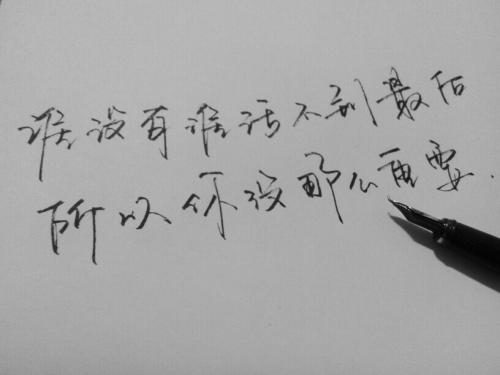 谁没有谁活不到最后
所以你没那么重要.